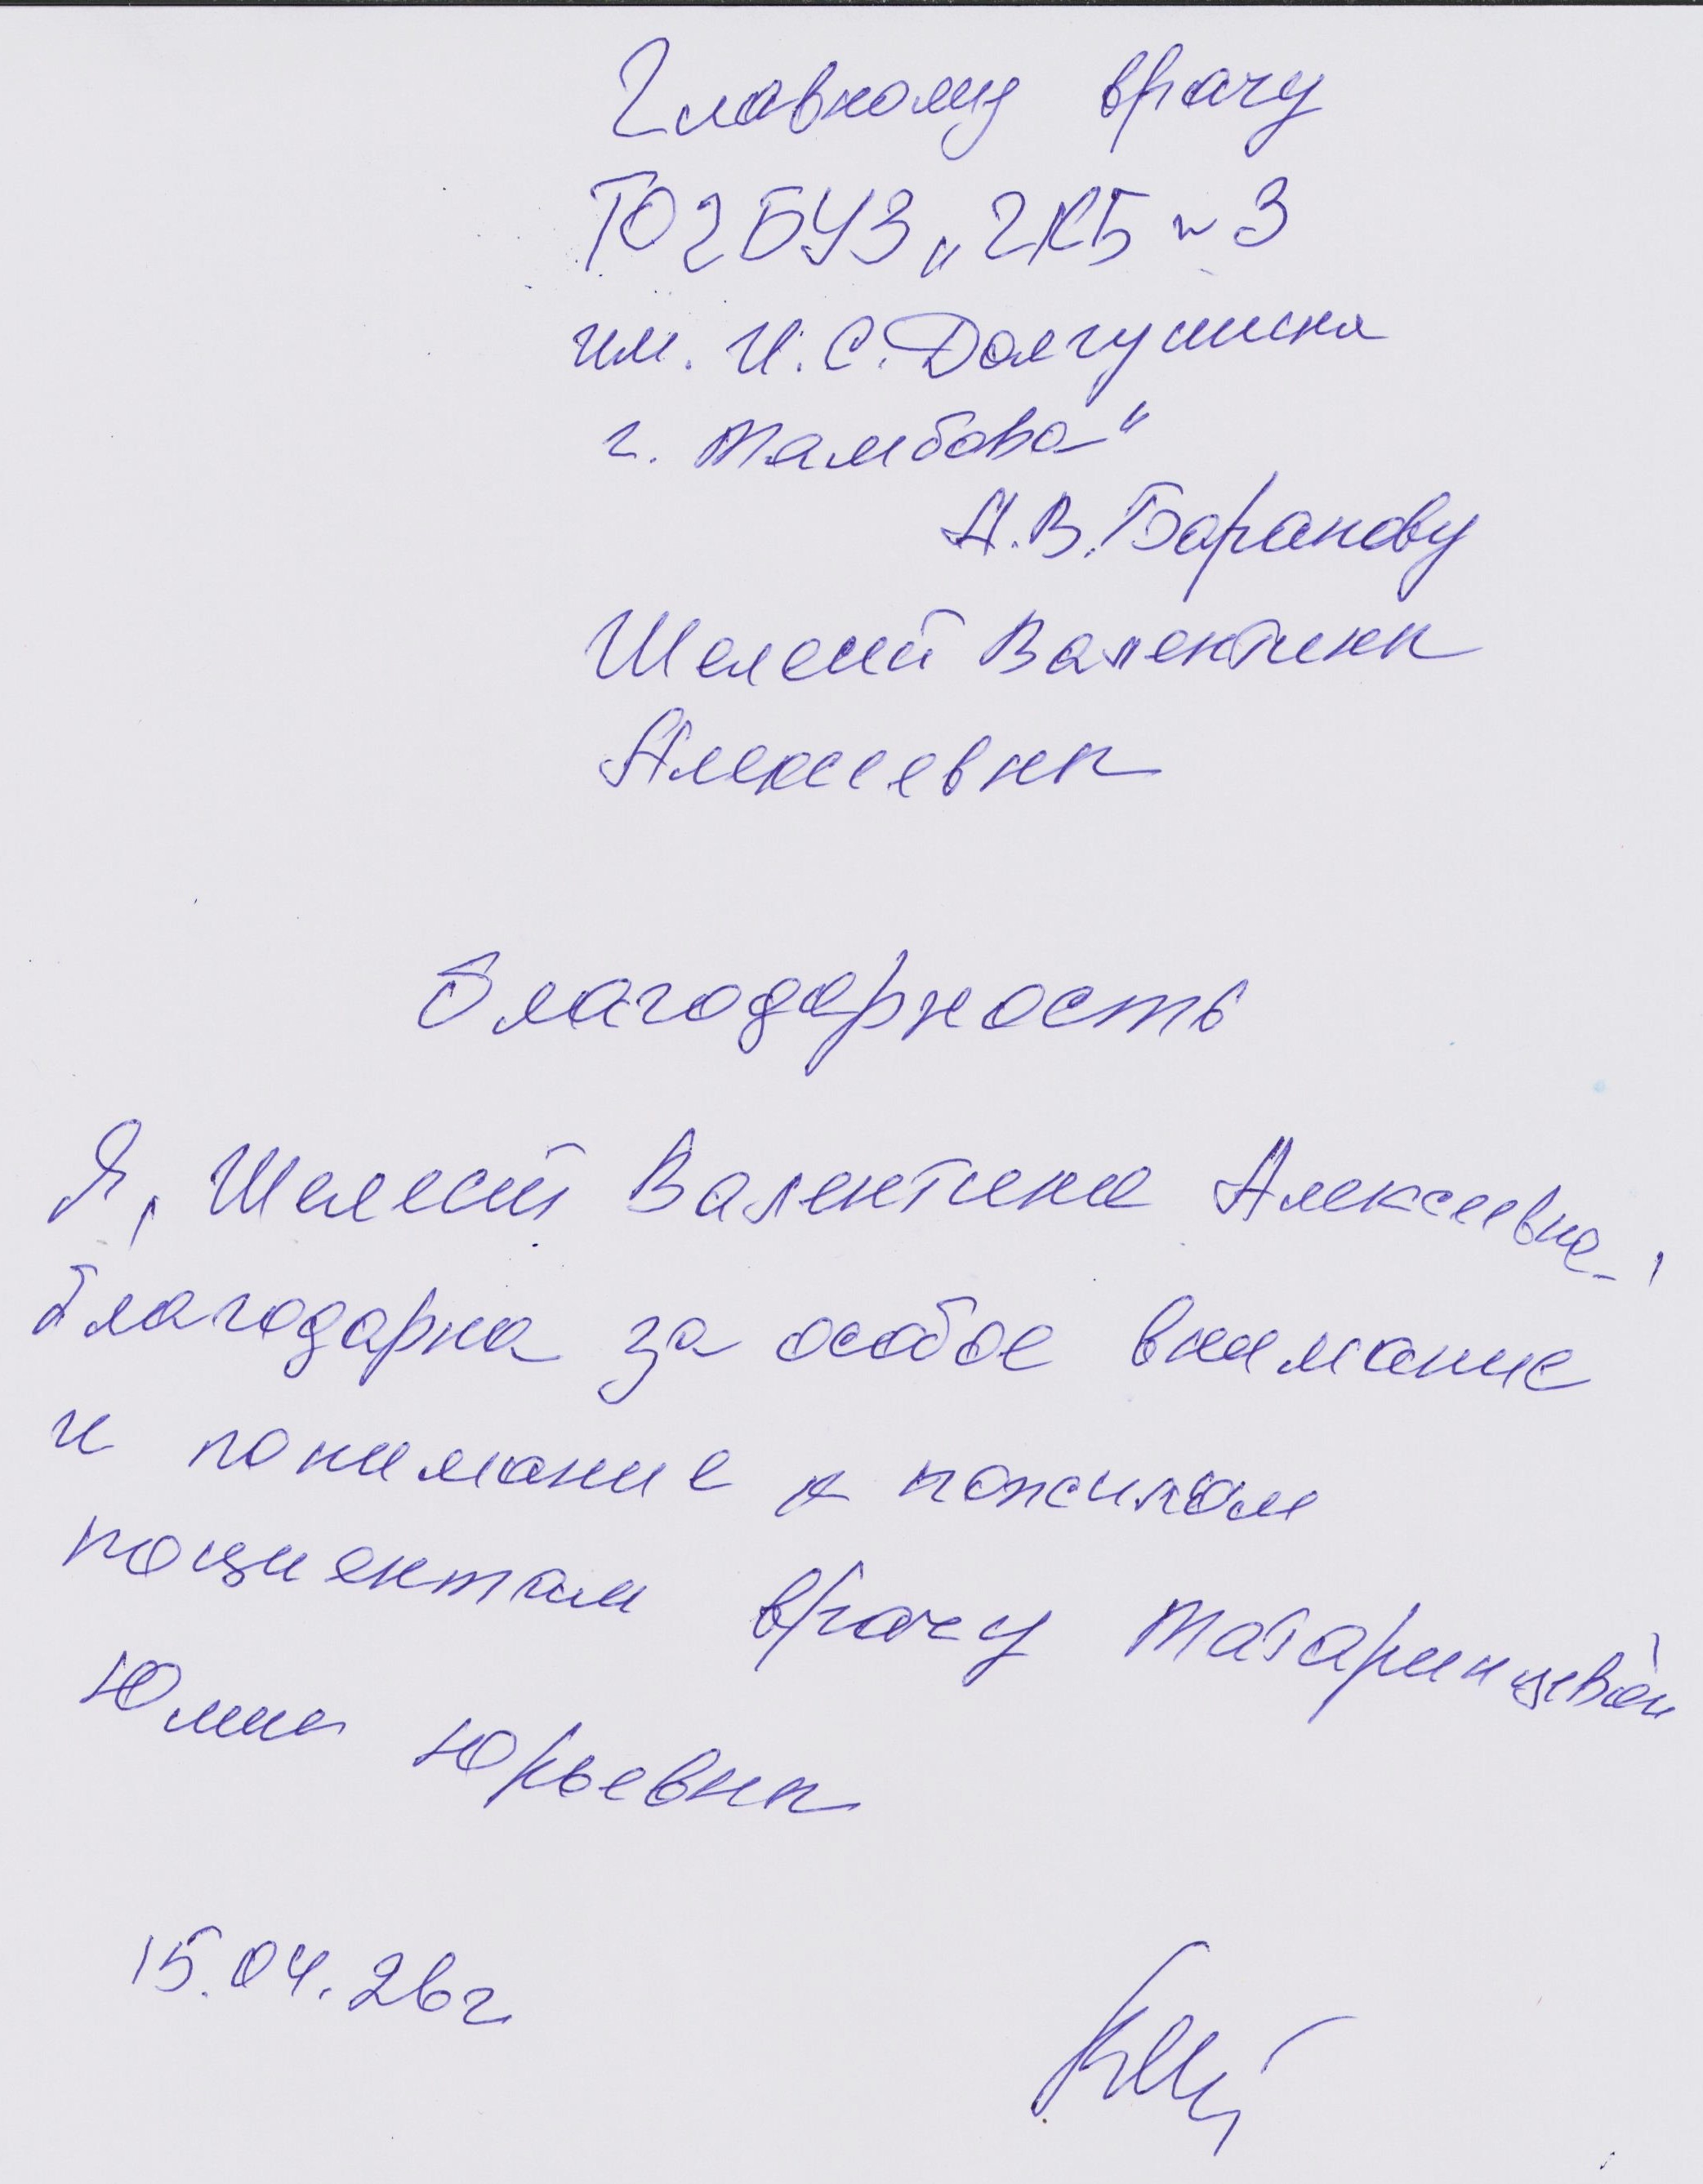 Главному врачу
ТОГБУЗ „ГКБ № 3
им. И.С. Долгушина
г. Тамбова"
А.В. Баранову
Шелест Валентины
Алексеевны
Благодарность
Я, Шелест Валентина Алексеевна,
благодарна за особое внимание
и понимание к пожилым
пациентам врачу Татаринцевой
Юлии Юрьевны
15.04.26г